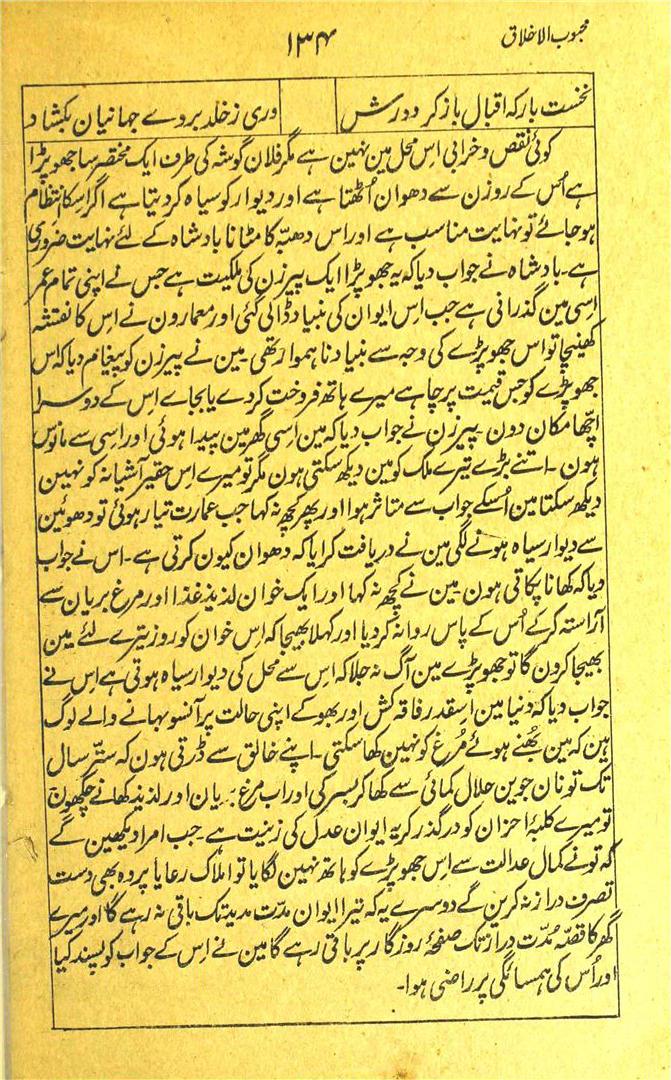 محبوب الاخلاق
۱۳۴
نخست بار که اقبال باز کرد درش
دری ز خلد بروے جہانیان بکشاد
کوئی نقص و خرابی اس محل مین نہین ہے مگر فلان گوشہ کی طرف ایک مختصر سا جھوپڑا
ہے اُس کے روزن سے دھوان اُٹھتا ہے اور دیوار کو سیاہ کر دیتا ہے اگر اسکا انتظام
ہو جائے تو نہایت مناسب ہے اور اس دھبّہ کا مٹانا بادشاہ کے لئے نہایت ضروری
ہے۔ بادشاہ نے جواب دیا کہ یہ جھوپڑا ایک پیرزن کی ملکیت ہے جس نے اپنی تمام عمر
اسی مین گذرانی ہے جب اس ایوان کی بنیاد ڈالی گئی اور معمارون نے اس کا نقشہ
کھینچا تو اس جھوپڑے کی وجہ سے بنیاد نا ہموار تھی۔ مین نے پیرزن کو پیغام دیا کہ اس
جھوپڑے کو جس قیمت پر چاہے میرے ہاتھ فروخت کر دے یا بجاے اس کے دوسرا
اچھا مکان دون۔ پیرزن نے جواب دیا کہ مین اسی گھر مین پیدا ہوئی اور اسی سے مانوس
ہون۔ اتنے بڑے تیرے ملک کو مین دیکھ سکتی ہون مگر تو میرے اس حقیر آشیانہ کو نہین
دیکھ سکتا مین اُسکے جواب سے متاثر ہوا اور پھر کچھ نہ کہا جب عمارت تیار ہوئی تو دھوئین
سے دیوار سیاہ ہونے لگی مین نے دریافت کرایا کہ دھوان کیون کرتی ہے۔ اس نے جواب
دیا کہ کھانا پکاتی ہون۔ مین نے کچھ نہ کہا اور ایک خوان لذیذ غذا اور مرغ بریان سے
آراستہ کرکے اُس کے پاس روانہ کر دیا اور کہلا بھیجا کہ اِس خوان کو روز تیرے لئے مین
بھیجا کرون گا تو جھوپڑے مین آگ نہ جلا کہ اس سے محل کی دیوار سیاہ ہوتی ہے اس نے
جواب دیا کہ دنیا مین اسقدر فاقہ کش اور بھوکے اپنی حالت پر آنسو بہانے والے لوگ
ہین کہ مین بُھنے ہوئے مُرغ کو نہین کھا سکتی۔ اپنے خالق سے ڈرتی ہون کہ ستّر سال
تک تو نان جوین حلال کمائی سے کھا کر بسر کی اور اب مرغ بریان اور لذیذ کھانے چکھون
تو میرے کلبۂ احزان کو درگذر کر یہ ایوان عدل کی زینت ہے۔ جب امرا دیکھین گے
کہ تونے کمال عدالت سے اِس جھوپڑے کو ہاتھ نہین لگایا تو املاک رعایا پر وہ بھی دست
تصرف دراز نہ کرین گے دوسرے یہ کہ تیرا ایوان مدّت مدید تک باقی نہ رہے گا اور میرے
گھر کا قصّہ مُدّت دراز تک صفحۂ روزگار پر باقی رہے گا مین نے اس کے جواب کو پسند کیا
اور اُس کی ہمسائگی پر راضی ہوا۔